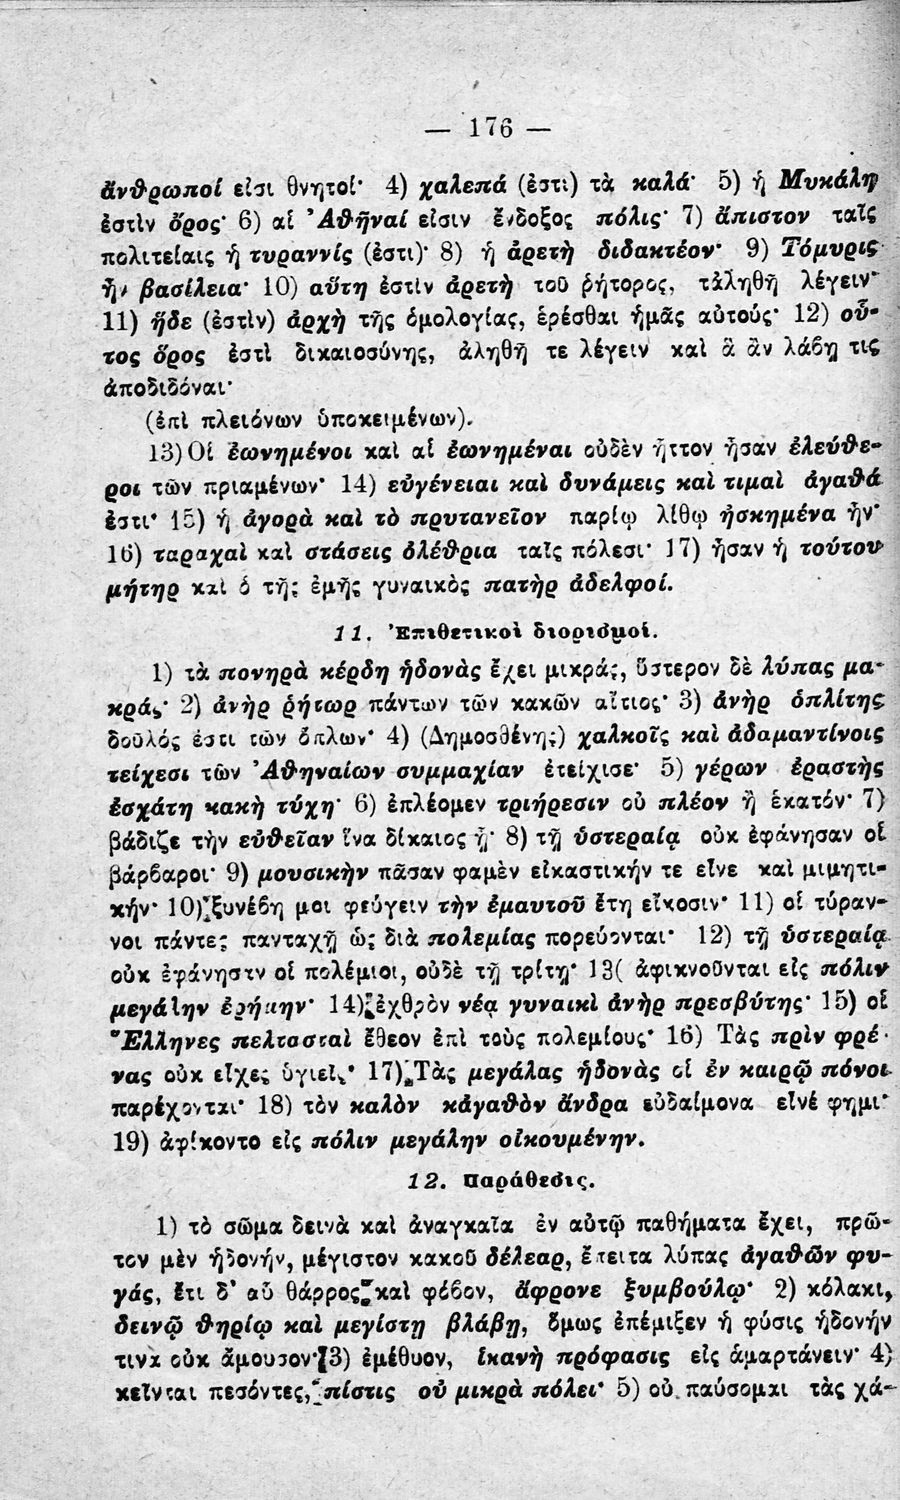 — 176 —
ἄνθρωποί εἰσι θνητοί· 4) χαλεπά (ἐστι) τὰ καλά· 5) ἡ Μυκάλη
ἐστὶν ὄρος· 6) αἱ Ἀθῆναί εἰσιν ἔνδοξος πόλις· 7) ἄπιστον ταῖς
πολιτείαις ἡ τυραννίς (ἐστι)· 8) ἡ ἀρετὴ διδακτέον· 9) Τόμυρις
ἦν βασίλεια· 10) αὕτη ἐστὶν ἀρετὴ τοῦ ῥήτορος, τἀληθῆ λέγειν·
11) ἥδε (ἐστὶν) ἀρχὴ τῆς ὁμολογίας, ἐρέσθαι ἡμᾶς αὐτούς· 12) οὗ-
τος ὅρος ἐστὶ δικαιοσύνης, ἀληθῆ τε λέγειν καὶ ἃ ἂν λάβῃ τις
ἀποδιδόναι·
(ἐπὶ πλειόνων ὑποκειμένων).
13) Οἱ ἐωνημένοι καὶ αἱ ἐωνημέναι οὐδὲν ἧττον ἦσαν ἐλεύθε-
ροι τῶν πριαμένων· 14) εὐγένειαι καὶ δυνάμεις καὶ τιμαὶ ἀγαθά
ἐστι· 15) ἡ ἀγορὰ καὶ τὸ πρυτανεῖον παρίῳ λίθῳ ἠσκημένα ἦν·
16) ταραχαὶ καὶ στάσεις ὀλέθρια ταῖς πόλεσι· 17) ἦσαν ἡ τούτου
μήτηρ καὶ ὁ τῆς ἐμῆς γυναικὸς πατὴρ ἀδελφοί.
11. Ἐπιθετικοὶ διορισμοί.
1) τὰ πονηρὰ κέρδη ἡδονὰς ἔχει μικράς, ὕστερον δὲ λύπας μα-
κράς· 2) ἀνὴρ ῥήτωρ πάντων τῶν κακῶν αἴτιος· 3) ἀνὴρ ὁπλίτης
δοῦλός ἐστι τῶν ὅπλων· 4) (Δημοσθένης) χαλκοῖς καὶ ἀδαμαντίνοις
τείχεσι τῶν Ἀθηναίων συμμαχίαν ἐτείχισε· 5) γέρων ἐραστὴς
ἐσχάτη κακὴ τύχη· 6) ἐπλέομεν τριήρεσιν οὐ πλέον ἢ ἑκατόν· 7)
βάδιζε τὴν εὐθεῖαν ἵνα δίκαιος ᾖ· 8) τῇ ὑστεραίᾳ οὐκ ἐφάνησαν οἱ
βάρβαροι· 9) μουσικὴν πᾶσαν φαμὲν εἰκαστικήν τε εἶνε καὶ μιμητι-
κήν· 10) ξυνέβη μοι φεύγειν τὴν ἐμαυτοῦ ἔτη εἴκοσιν· 11) οἱ τύραν-
νοι πάντες πανταχῇ ὡς διὰ πολεμίας πορεύονται· 12) τῇ ὑστεραίᾳ
οὐκ ἐφάνησαν οἱ πολέμιοι, οὐδὲ τῇ τρίτῃ· 13( ἀφικνοῦνται εἰς πόλιν
μεγάλην ἐρήμην· 14) ἐχθρὸν νέᾳ γυναικὶ ἀνὴρ πρεσβύτης· 15) οἱ
Ἕλληνες πελτασταὶ ἔθεον ἐπὶ τοὺς πολεμίους· 16) Τὰς πρὶν φρέ-
νας οὐκ εἶχες ὑγιεῖς· 17) Τὰς μεγάλας ἡδονὰς οἱ ἐν καιρῷ πόνοι
παρέχονται· 18) τὸν καλὸν κἀγαθὸν ἄνδρα εὐδαίμονα εἶνέ φημι·
19) ἀφίκοντο εἰς πόλιν μεγάλην οἰκουμένην.
12. Παράθεσις.
1) τὸ σῶμα δεινὰ καὶ ἀναγκαῖα ἐν αὐτῷ παθήματα ἔχει, πρῶ-
τον μὲν ἡδονήν, μέγιστον κακοῦ δέλεαρ, ἔπειτα λύπας ἀγαθῶν φυ-
γάς, ἔτι δ' αὖ θάρρος καὶ φόβον, ἄφρονε ξυμβούλω· 2) κόλακι,
δεινῷ θηρίῳ καὶ μεγίστῃ βλάβῃ, ὅμως ἐπέμιξεν ἡ φύσις ἡδονήν
τινα οὐκ ἄμουσον· 3) ἐμέθυον, ἱκανὴ πρόφασις εἰς ἁμαρτάνειν· 4)
κεῖνται πεσόντες, πίστις οὐ μικρὰ πόλει· 5) οὐ παύσομαι τὰς χά-